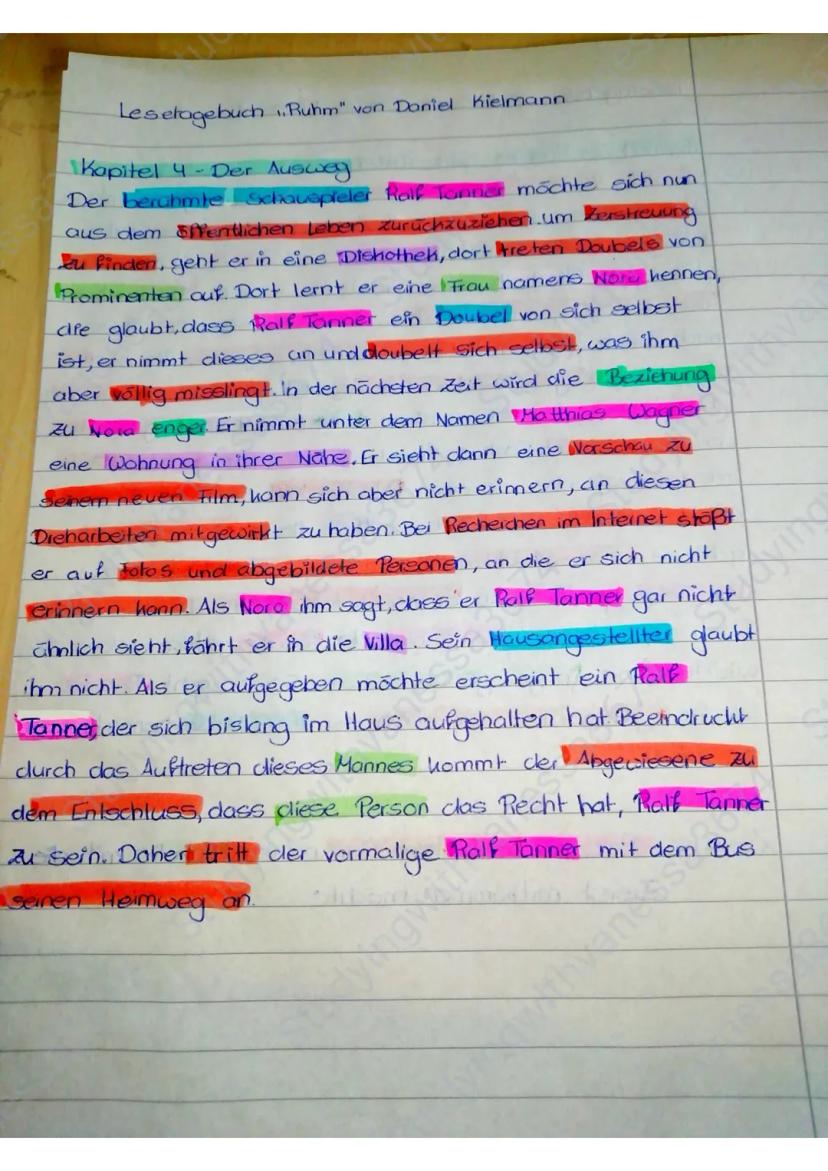 Lesetagebuch „Ruhm" von Daniel Kielmann
Kapitel 4 - Der Ausweg
Der berühmte Schauspieler Ralf Tanner möchte sich nun
aus dem öffentlichen Leben zurückzuziehen. um Zerstreuung
zu finden, geht er in eine Diskothek, dort treten Doubels von
Prominenten auf. Dort lernt er eine Frau namens Nora kennen,
die glaubt, dass Ralf Tanner ein Doubel von sich selbst
ist, er nimmt dieses an und doubelt sich selbst, was ihm
aber völlig misslingt. In der nächsten Zeit wird die Beziehung
zu Nora enger. Er nimmt unter dem Namen Matthias Wagner
eine Wohnung in ihrer Nähe. Er sieht dann eine Vorschau zu
seinem neuen Film, kann sich aber nicht erinnern, an diesen
Dreharbeiten mitgewirkt zu haben. Bei Recherchen im Internet stößt
er auf Fotos und abgebildete Personen, an die er sich nicht
erinnern kann. Als Nora ihm sagt, dass er Ralf Tanner gar nicht
ähnlich sieht, fährt er in die Villa. Sein Hausangestellter glaubt
ihm nicht. Als er aufgegeben möchte erscheint ein Ralf
Tanner, der sich bislang im Haus aufgehalten hat. Beeindruckt
durch das Auftreten dieses Mannes kommt der Abgewiesene zu
dem Entschluss, dass diese Person das Recht hat, Ralf Tanner
zu sein. Daher tritt der vormalige Ralf Tanner mit dem Bus
seinen Heimweg an.